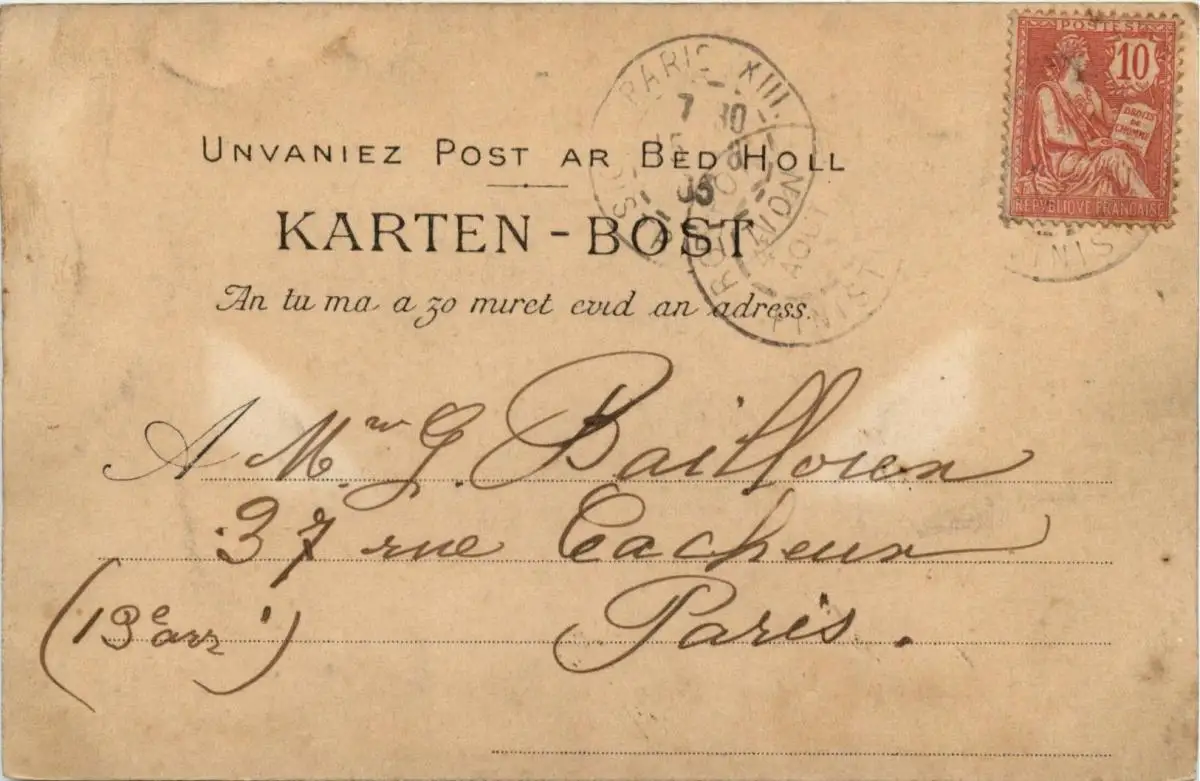 UNVANIEZ POST AR BED HOLL
KARTEN-BOST
An tu ma a zo miret evid an adress.
POSTES
10
DROITS DE L'HOMME
REPUBLIQUE FRANÇAISE
PARIS XIII
7 30
15
05
AOUT
FINIST
FINIS
A Mr G. Baillouen
37 rue Cacheux
(13e arr)
Paris.